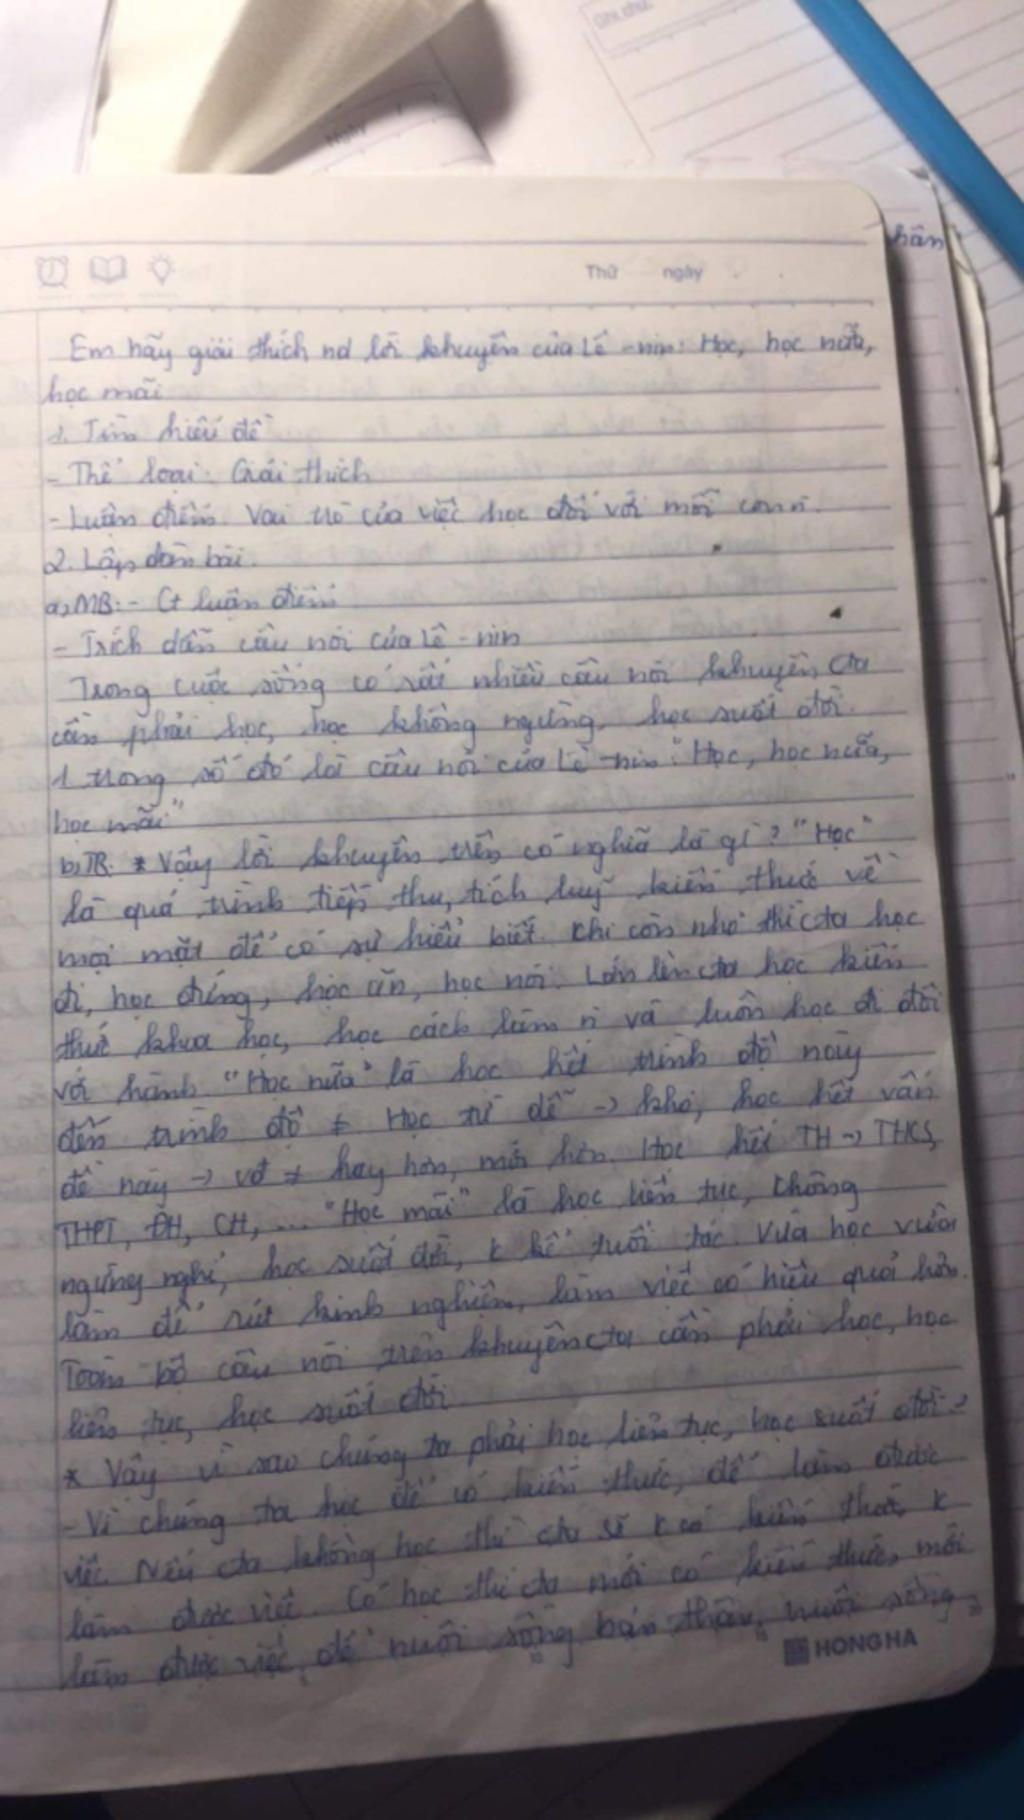 Ghi chú:
Ngày
hân
Thứ ngày
Em hãy giải thích nd lời khuyên của Lê-nin: Học, học nữa,
học mãi
1. Tìm hiểu đề
- Thể loại: Giải thích
- Luận điểm: Vai trò của việc học đối với mỗi con n.
2. Lập dàn bài.
a, MB: - Gt luận điểm
- Trích dẫn câu nói của Lê-nin
Trong cuộc sống có rất nhiều câu nói khuyên cta
cần phải học, học không ngừng, học suốt đời.
1 trong số đó là câu nói của Lê-nin: "Học, học nữa,
học mãi"
b, TB: * Vậy lời khuyên trên có nghĩa là gì? "Học"
là quá trình tiếp thu, tích luỹ kiến thức về
mọi mặt để có sự hiểu biết. Khi còn nhỏ thì cta học
đi, học đứng, học ăn, học nói. Lớn lên cta học kiến
thức khoa học, học cách làm n và luôn học đi đôi
với hành. "Học nữa" là học hết trình độ này
đến trình độ ≠. Học từ dễ → khó, học hết vấn
đề này → vđ ≠ hay hơn, mới hơn. Học hết TH → THCS,
THPT, ĐH, CH, ... "Học mãi" là học liên tục, không
ngừng nghỉ, học suốt đời, k kể tuổi tác. Vừa học vừa
làm để rút kinh nghiệm, làm việc có hiệu quả hơn.
Toàn bộ câu nói trên khuyên cta cần phải học, học
liên tục, học suốt đời.
* Vậy vì sao chúng ta phải học liên tục, học suốt đời?
- Vì chúng ta học để có kiến thức, để làm được
việc. Nếu cta không học thì cta sẽ k có kiến thức, k
làm được việc. Có học thì cta mới có kiến thức, mới
làm được việc, để nuôi sống bản thân, nuôi sống
HONG HA